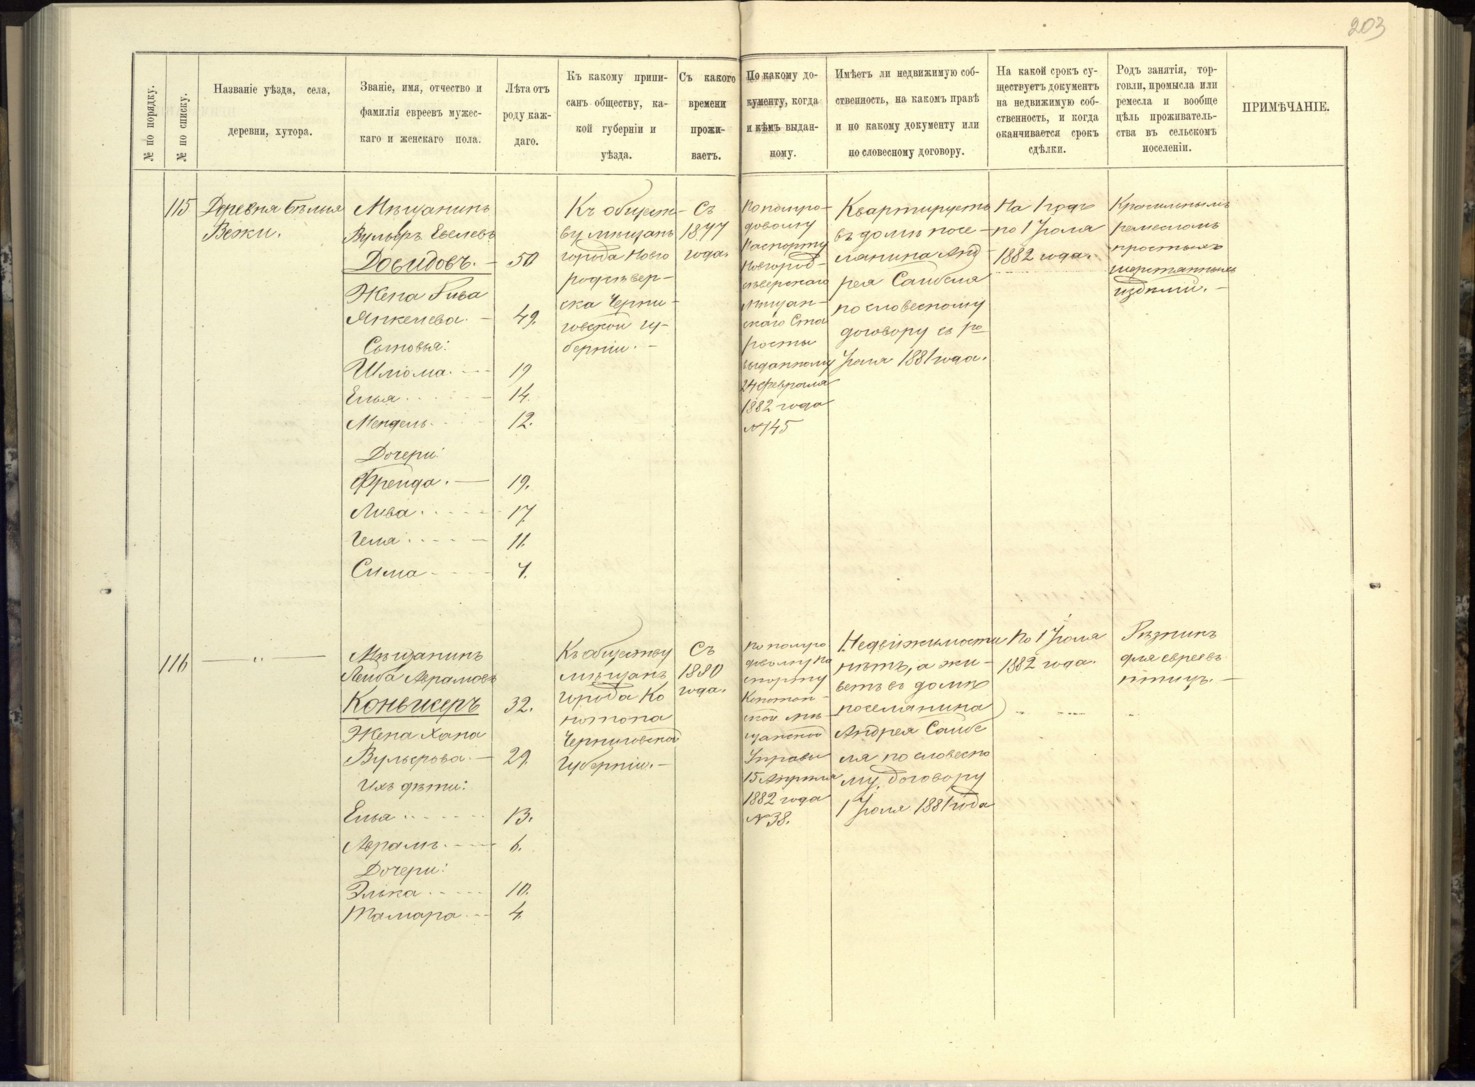 203
№ по порядку.
№ по списку.
Названіе уѣзда, села,
деревни, хутора.
Званіе, имя, отчество и
фамилія евреевъ мужес-
каго и женскаго пола.
Лѣта отъ
роду каж-
даго.
Къ какому припи-
санъ обществу, ка-
кой губерніи и
уѣзда.
Съ какого
времени
прожи-
ваетъ.
По какому до-
кументу, когда
и кѣмъ выдан-
ному.
Имѣетъ ли недвижимую соб-
ственность, на какомъ правѣ
и по какому документу или
по словесному договору.
На какой срокъ су-
ществуетъ документъ
на недвижимую соб-
ственность, и когда
оканчивается срокъ
сдѣлки.
Родъ занятія, тор-
говли, промысла или
ремесла и вообще
цѣль проживатель-
ства въ сельскомъ
поселеніи.
ПРИМѢЧАНІЕ.
115
Деревня Бѣлыя
Вежи.
Мѣщанинъ
Вульфъ Евелевъ
Довидовъ. - 50
Жена Лива
Янкелева. - 49.
Сыновья:
Шліома. - 19
Елья - 14.
Мендель - 12.
Дочери:
Фрейда. - 19.
Лива - 17
Геля - 11.
Сима - 7.
Къ общест-
ву мѣщанъ
города Новго
родсѣвер-
ска Черни-
говской гу-
берніи. -
Съ
1877
года.
По полуго-
довому
паспорту
Новгород-
сѣверскаго
Мѣщан-
скаго Ста
росты
выданному
24 февраля
1882 года
№ 745
Квартируетъ
въ домѣ посе-
лянина Анд
рея Саибеля
по словесному
договору съ 1го
Іюля 1881 года.
На 1 годъ
по 1 Іюля
1882 года.
Красильнымъ
ремесломъ
простыхъ
шерстяныхъ
издѣлій. -
116
— " —
Мѣщанинъ
Лейба Абрамовъ
Коньисеръ 32.
Жена Хана
Вульфова. - 29
Ихъ дѣти:
Елья - 13.
Абрамъ. - 6.
Дочери:
Элька - 10.
Тамара - 4
Къ обществу
мѣщанъ
города Ко
нотопа
Черниговской
Губерніи. -
Съ
1880
года.
По полуго
довому па
спорту
Конотоп-
ской мѣ
щанской
Управы
15 Апрѣля
1882 года
№ 38.
Недвижимости
нѣтъ, а жи-
ветъ въ домѣ
поселянина
Андрея Саибе
ля по словесно
му договору
1 Іюля 1881 года
По 1 Іюля
1882 года.
Рѣзникъ
для евреевъ
птицъ. -